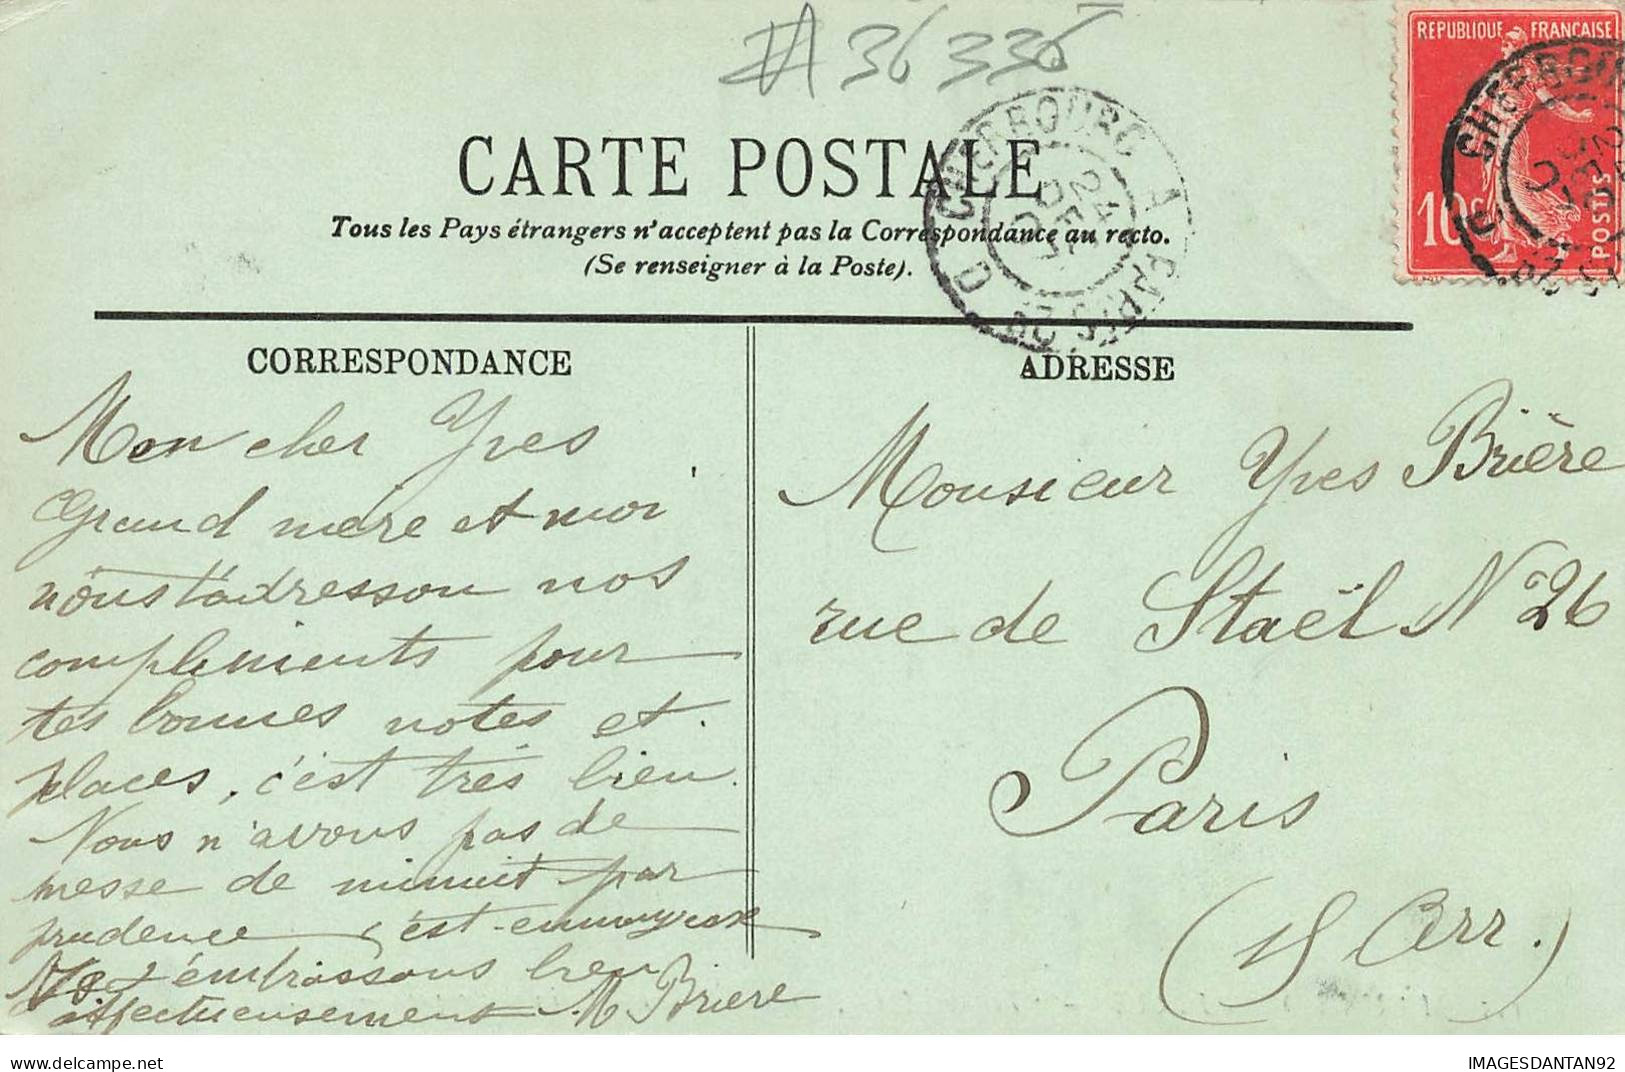 #36336
REPUBLIQUE FRANÇAISE
10c POSTES
CHERBOURG A PARIS 2° D
24 DEC 07
CARTE POSTALE
Tous les Pays étrangers n'acceptent pas la Correspondance au recto.
(Se renseigner à la Poste).
CORRESPONDANCE
Mon cher Yves
Grand mère et moi
nous t'adresson nos
compliments pour
tes bonnes notes et
places, c'est très bien.
Nous n'avons pas de
messe de minuit par
prudence c'est ennuyeux
t'embrassons bien
affectueusement M Brière
ADRESSE
Monsieur Yves Brière
rue de Staël N 26
Paris
(Arr.)
delcampe.net
IMAGESDANTAN92